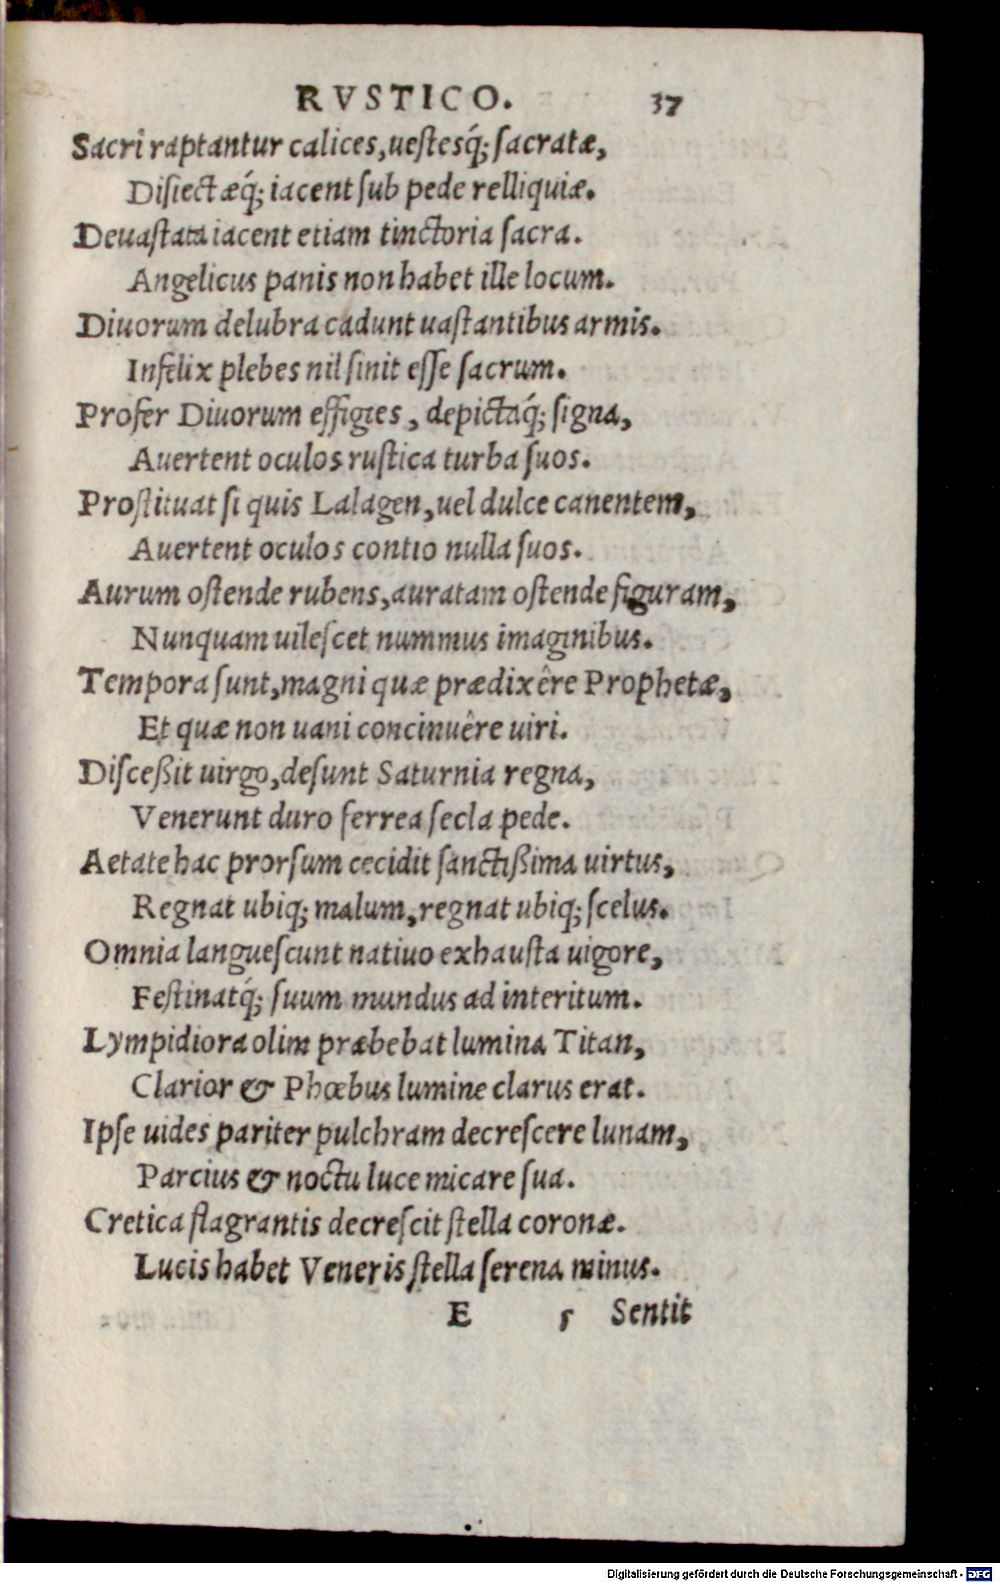 RVSTICO. 37
Sacri raptantur calices, ueſtesq́; ſacratæ,
Diſiectæq́; iacent ſub pede relliquiæ.
Deuaſtata iacent etiam tinctoria ſacra.
Angelicus panis non habet ille locum.
Diuorum delubra cadunt uaſtantibus armis.
Infelix plebes nil ſinit eſſe ſacrum.
Profer Diuorum effigies, depictaq́; ſigna,
Auertent oculos ruſtica turba ſuos.
Proſtituat ſi quis Lalagen, uel dulce canentem,
Auertent oculos contio nulla ſuos.
Aurum oſtende rubens, auratam oſtende figuram,
Nunquam uileſcet nummus imaginibus.
Tempora ſunt, magni quæ prædixêre Prophetæ,
Et quæ non uani concinuêre uiri.
Diſceßit uirgo, deſunt Saturnia regna,
Venerunt duro ferrea ſecla pede.
Aetate hac prorſum cecidit ſanctißima uirtus,
Regnat ubiq; malum, regnat ubiq; ſcelus.
Omnia langueſcunt natiuo exhauſta uigore,
Feſtinatq́; ſuum mundus ad interitum.
Lympidiora olim præbebat lumina Titan,
Clarior & Phœbus lumine clarus erat.
Ipſe uides pariter pulchram decreſcere lunam,
Parcius & noctu luce micare ſua.
Cretica flagrantis decreſcit ſtella coronæ.
Lucis habet Veneris ſtella ſerena minus.
E 5 Sentit
Digitalisierung gefördert durch die Deutsche Forschungsgemeinschaft - DFG